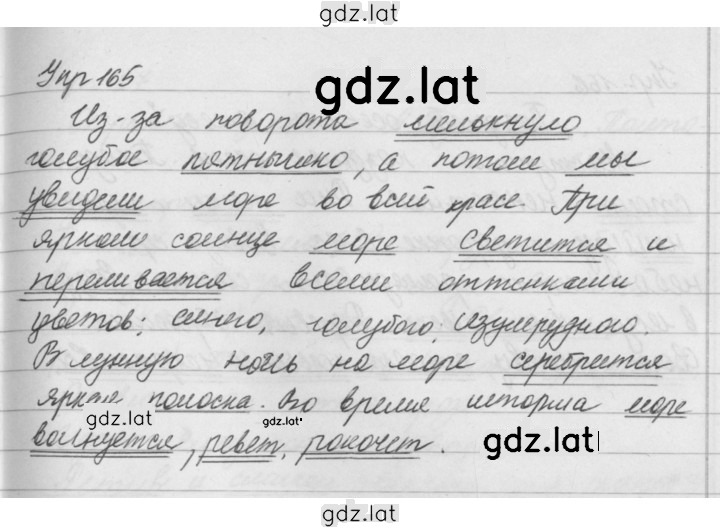 gdz.lat
Упр 165
gdz.lat
Из-за поворота мелькнуло
голубое пятнышко, а потом мы
увидели море во всей красе. При
ярком солнце море светится и
переливается всеми оттенками
цветов: синего, голубого, изумрудного.
В лунную ночь на море серебрится
яркая полоска. Во время шторма море
gdz.lat gdz.lat gdz.lat
волнуется, ревет, рокочет.
gdz.lat